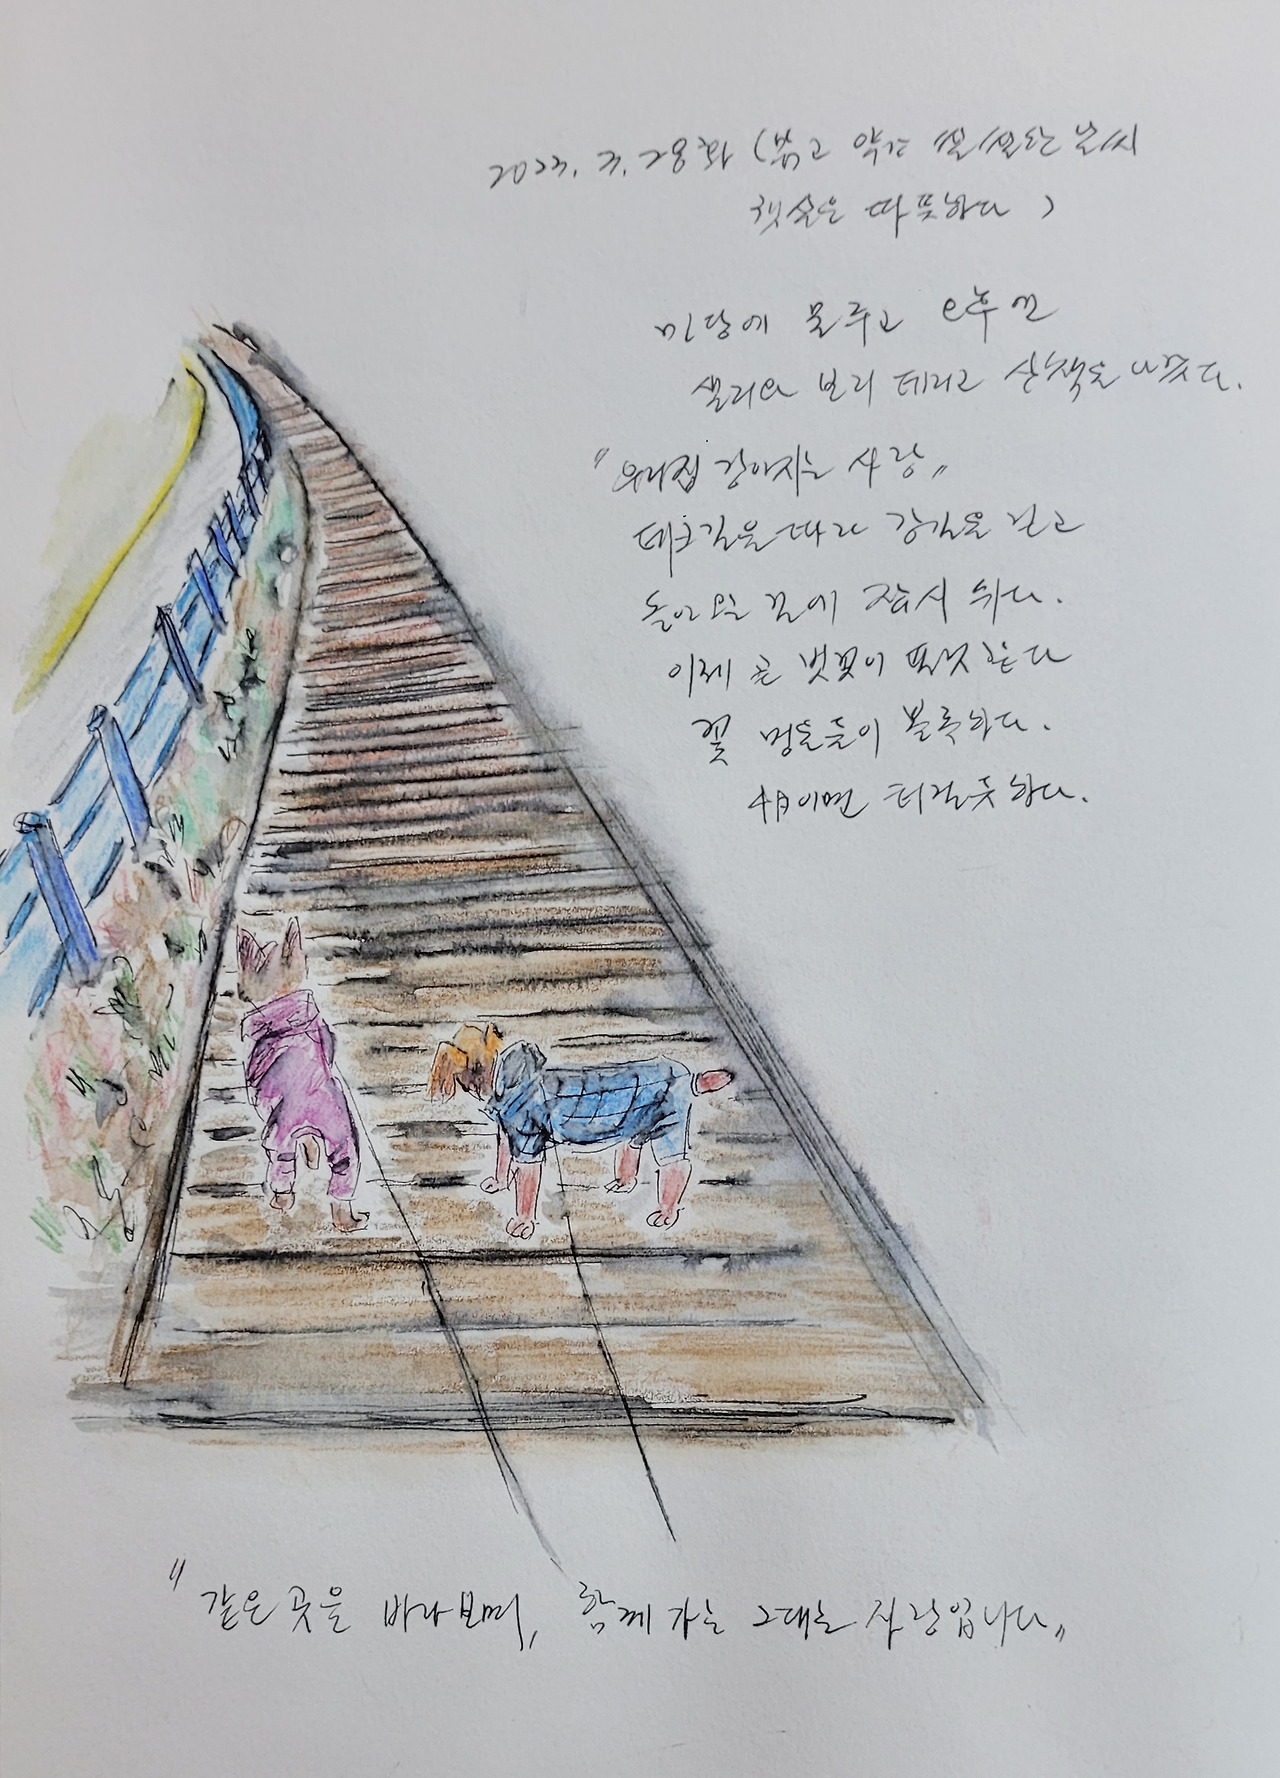 2023. 3. 28 화 (봄이고 약간 쌀쌀한 날씨
햇살은 따뜻하다 )
마당에 물주고 오후엔
샐리와 보리 데리고 산책을 나갔다.
"우리집 강아지는 사랑"
데크길을 따라 강길을 걷고
돌아오는 길에 잠시 쉬다.
이제 곧 벚꽃이 필 듯 하다
꽃 멍울들이 볼록하다.
4月이면 터질듯 하다.
"같은 곳을 바라보며, 함께 가는 그대는 사랑입니다"